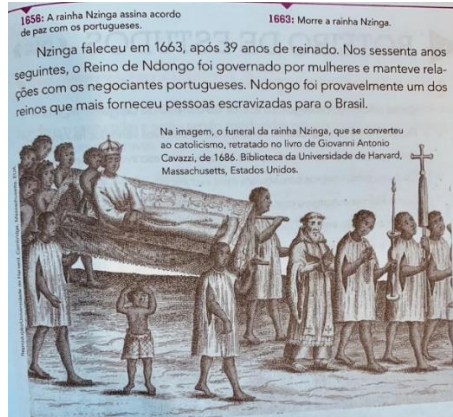 1656: A rainha Nzinga assina acordo
de paz com os portugueses.
1663: Morre a rainha Nzinga.
Nzinga faleceu em 1663, após 39 anos de reinado. Nos sessenta anos
seguintes, o Reino de Ndongo foi governado por mulheres e manteve rela-
ções com os negociantes portugueses. Ndongo foi provavelmente um dos
reinos que mais forneceu pessoas escravizadas para o Brasil.
Na imagem, o funeral da rainha Nzinga, que se converteu
ao catolicismo, retratado no livro de Giovanni Antonio
Cavazzi, de 1686. Biblioteca da Universidade de Harvard,
Massachusetts, Estados Unidos.